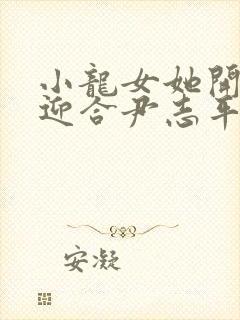 小龍女她開
迎合尹志平
安凝